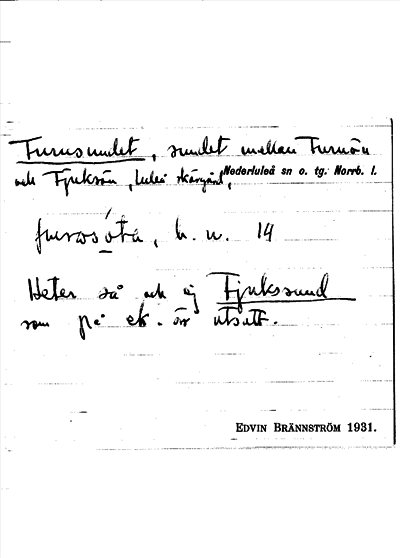 Furusundet, sundet mellan Furuön
och Fjuksön, Luleå skärgård, Nederluleå sn o. tg. Norrb. l.
h. u. 14
Heter så och ej Fjukssund
som på ek. är utsatt.
EDVIN BRÄNNSTRÖM 1931.